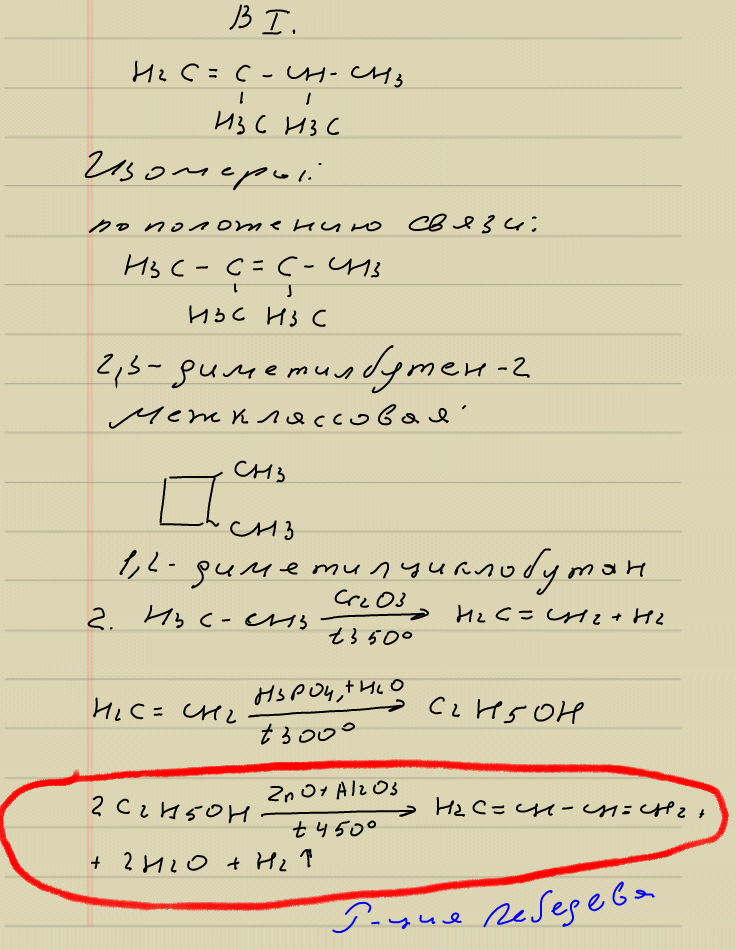 В I.
H2C = C - CH - CH3
H3C H3C
Изомеры:
по положению связи:
H3C - C = C - CH3
H3C H3C
2,3-диметилбутен-2
Межклассовая:
CH3
CH3
1,2-диметилциклобутан
2. H3C - CH3 Cr2O3 t350° → H2C = CH2 + H2
H2C = CH2 H3PO4,+H2O t300° → C2H5OH
2C2H5OH ZnO+Al2O3 t450° → H2C=CH-CH=CH2 +
+ 2H2O + H2↑
Р-ция Лебедева